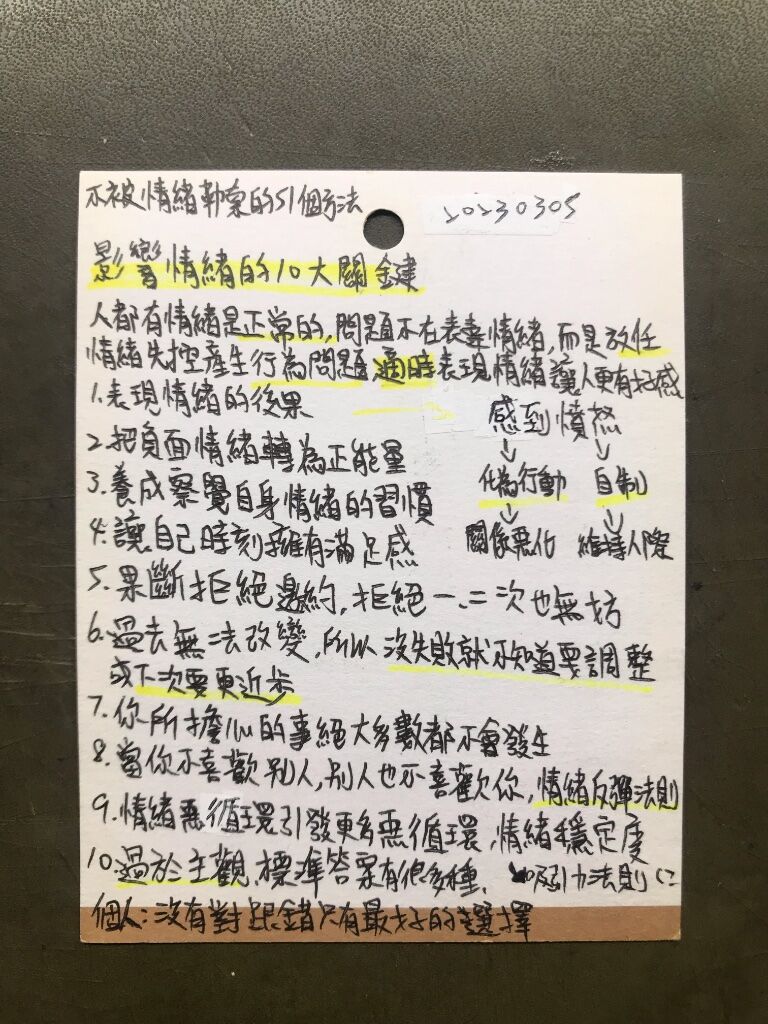 不被情緒勒索的51個方法
20230305
影響情緒的10大關鍵
人都有情緒是正常的,問題不在表達情緒,而是放任
情緒失控產生行為問題 適時表現情緒讓人更有好感
1.表現情緒的後果
感到憤怒
2.把負面情緒轉為正能量
↓ ↓
化為行動 自制
3.養成察覺自身情緒的習慣
↓ ↓
關係惡化 維持人際
4.讓自己時刻擁有滿足感
5.果斷拒絕邀約,拒絕一、二次也無妨
6.過去無法改變,所以沒失敗就不知道要調整
或下次要更近步
7.你所擔心的事絕大多數都不會發生
8.當你不喜歡別人,別人也不喜歡你,情緒反彈法則
9.情緒惡循環引發更多惡循環,情緒穩定度
10.過於主觀,標準答案有很多種、 吸引力法則
個人:沒有對跟錯只有最好的選擇